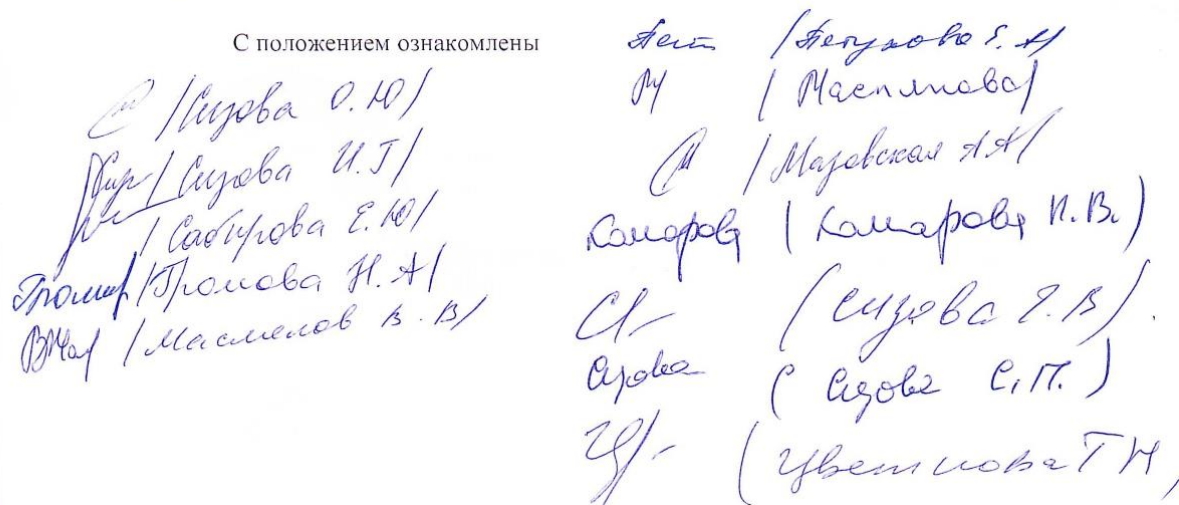 С положением ознакомлены
/Сизова О.Ю/
/Сизова И.Г/
/Сабирова Е.Ю/
/Громова Н.А/
/Маслов В.В/
/Петухова Е.А/
М / Маслинова/
/Мазовская АА/
Комарова (Комарова Н.В.)
(Сизова Е.В).
Сизова (Сизова С.П.)
(Цветкова ТН)